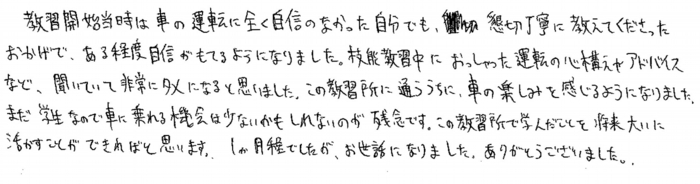 教習開始当時は車の運転に全く自信のなかった自分でも、懇切丁寧に教えてくださった
おかげで、ある程度自信がもてるようになりました。技能教習中におっしゃった運転の心構えやアドバイス
など、聞いていて非常にタメになると思いました。この教習所に通ううちに、車の楽しみを感じるようになりました。
まだ学生なので車に乗れる機会は少ないかもしれないのが残念です。この教習所で学んだことを将来大いに
活かすことができればと思います。1ヵ月程でしたが、お世話になりました。ありがとうございました。